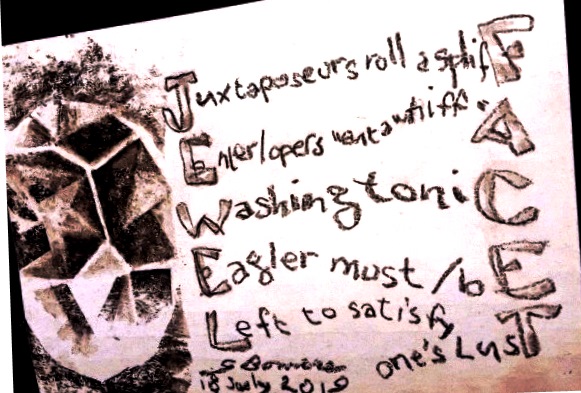 Juxtaposeurs roll a splifF
Enterlopers want a whiff. A
WashingtoniC
Eagler must /bE
Left to satisfy
one's LusT
18 July 2019